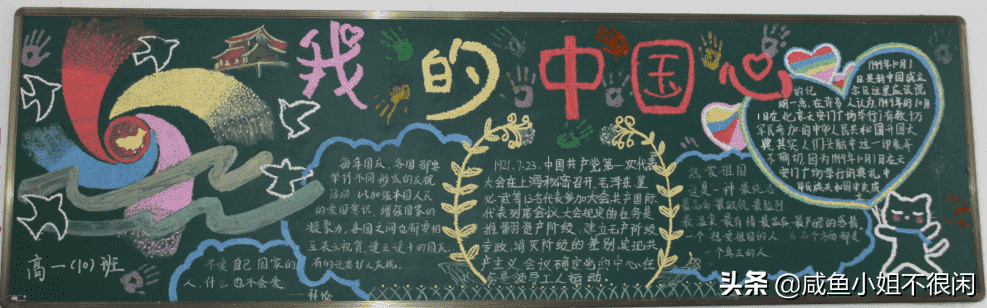 我的中国心
高一(10)班
不爱自己国家的
人,什么也不会爱
每年国庆,各国都要
举行不同形式的庆祝
活动,以加强本国人民
的爱国意识,增强国家的
凝聚力。各国之间也都要相
互表示祝贺,
1921.7.23.中国共产党第一次代表
大会在上海秘密召开,毛泽东董
必武等13名代表参加大会共产国际
代表列席会议大会规定的任务是
推翻资产阶级,建立无产阶级
专政,消灭阶级的差别,实现共
产主义,会议确定当前中心任
务是领导工人运动.
热爱祖国
这是一种最纯洁
最高尚最
最温柔、最有情、最温存、最严酷的感情
一个热爱祖国的人,
一个真正的人
1949年10月1
日是新中国成立
的纪念日这里应该说
明一点,在许多人认为,1949年的10月
1日在北京天安门广场举行了有数十万
军民参加的中华人民共和国开国大
典,其实,人们头脑中这一印象并
不确切,因为1949年10月1日在天
安门广场举行的典礼,中
华人民共和国中央成
头条 @咸鱼小姐不很闲